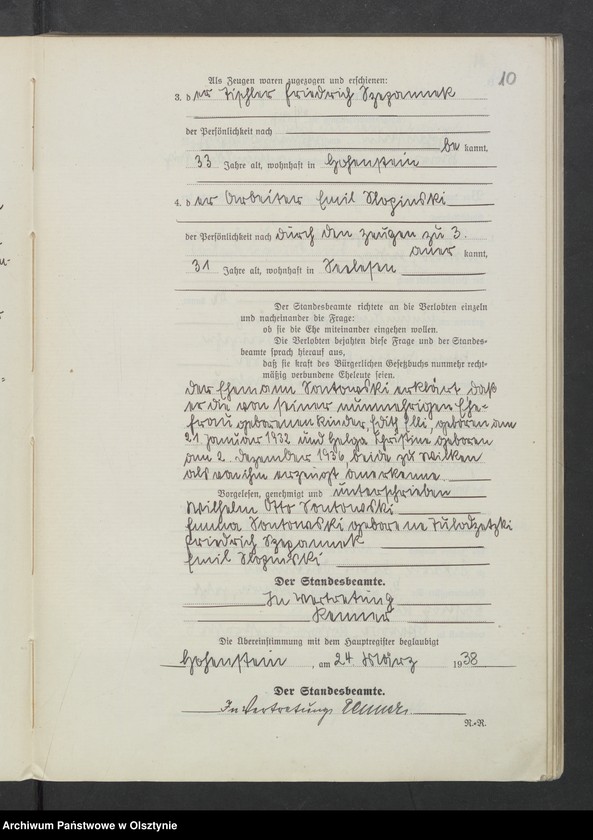 10
Als Zeugen waren zugezogen und erschienen:
3. der Tischler Friedrich Szepannek
der Persönlichkeit nach
be kannt,
33 Jahre alt, wohnhaft in Hohenstein
4. der Arbeiter Emil Slopinski
der Persönlichkeit nach durch den Zeugen zu 3.
aner kannt,
31 Jahre alt, wohnhaft in Seelesen
Der Standesbeamte richtete an die Verlobten einzeln
und nacheinander die Frage:
ob sie die Ehe miteinander eingehen wollen.
Die Verlobten bejahten diese Frage und der Standes-
beamte sprach hierauf aus,
daß sie kraft des Bürgerlichen Gesetzbuchs nunmehr recht-
mäßig verbundene Eheleute seien.
Der Ehemann Sontowski erklärt, daß
er die von seiner nunmehrigen Ehe-
frau geborenen Kinder, Edith Elli, geboren am
21 Januar 1932 und Helga Christine geboren
am 2. Dezember 1936, beide zu Wilken
als von ihm erzeugt anerkenne.
Vorgelesen, genehmigt und unterschrieben
Wilhelm Otto Sontowski
Emma Sontowski geborene Tulodzetzki
Friedrich Szepannek
Emil Slopinski
Der Standesbeamte.
In Vertretung
Renner
Die Übereinstimmung mit dem Hauptregister beglaubigt
Hohenstein, am 24. März 1938
Der Standesbeamte.
In Vertretung: Renner.
R.-R.
Archiwum Państwowe w Olsztynie